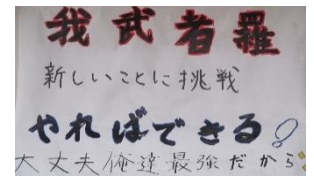 我武者羅
新しいことに挑戦
やればできる!
大丈夫俺達最強だから